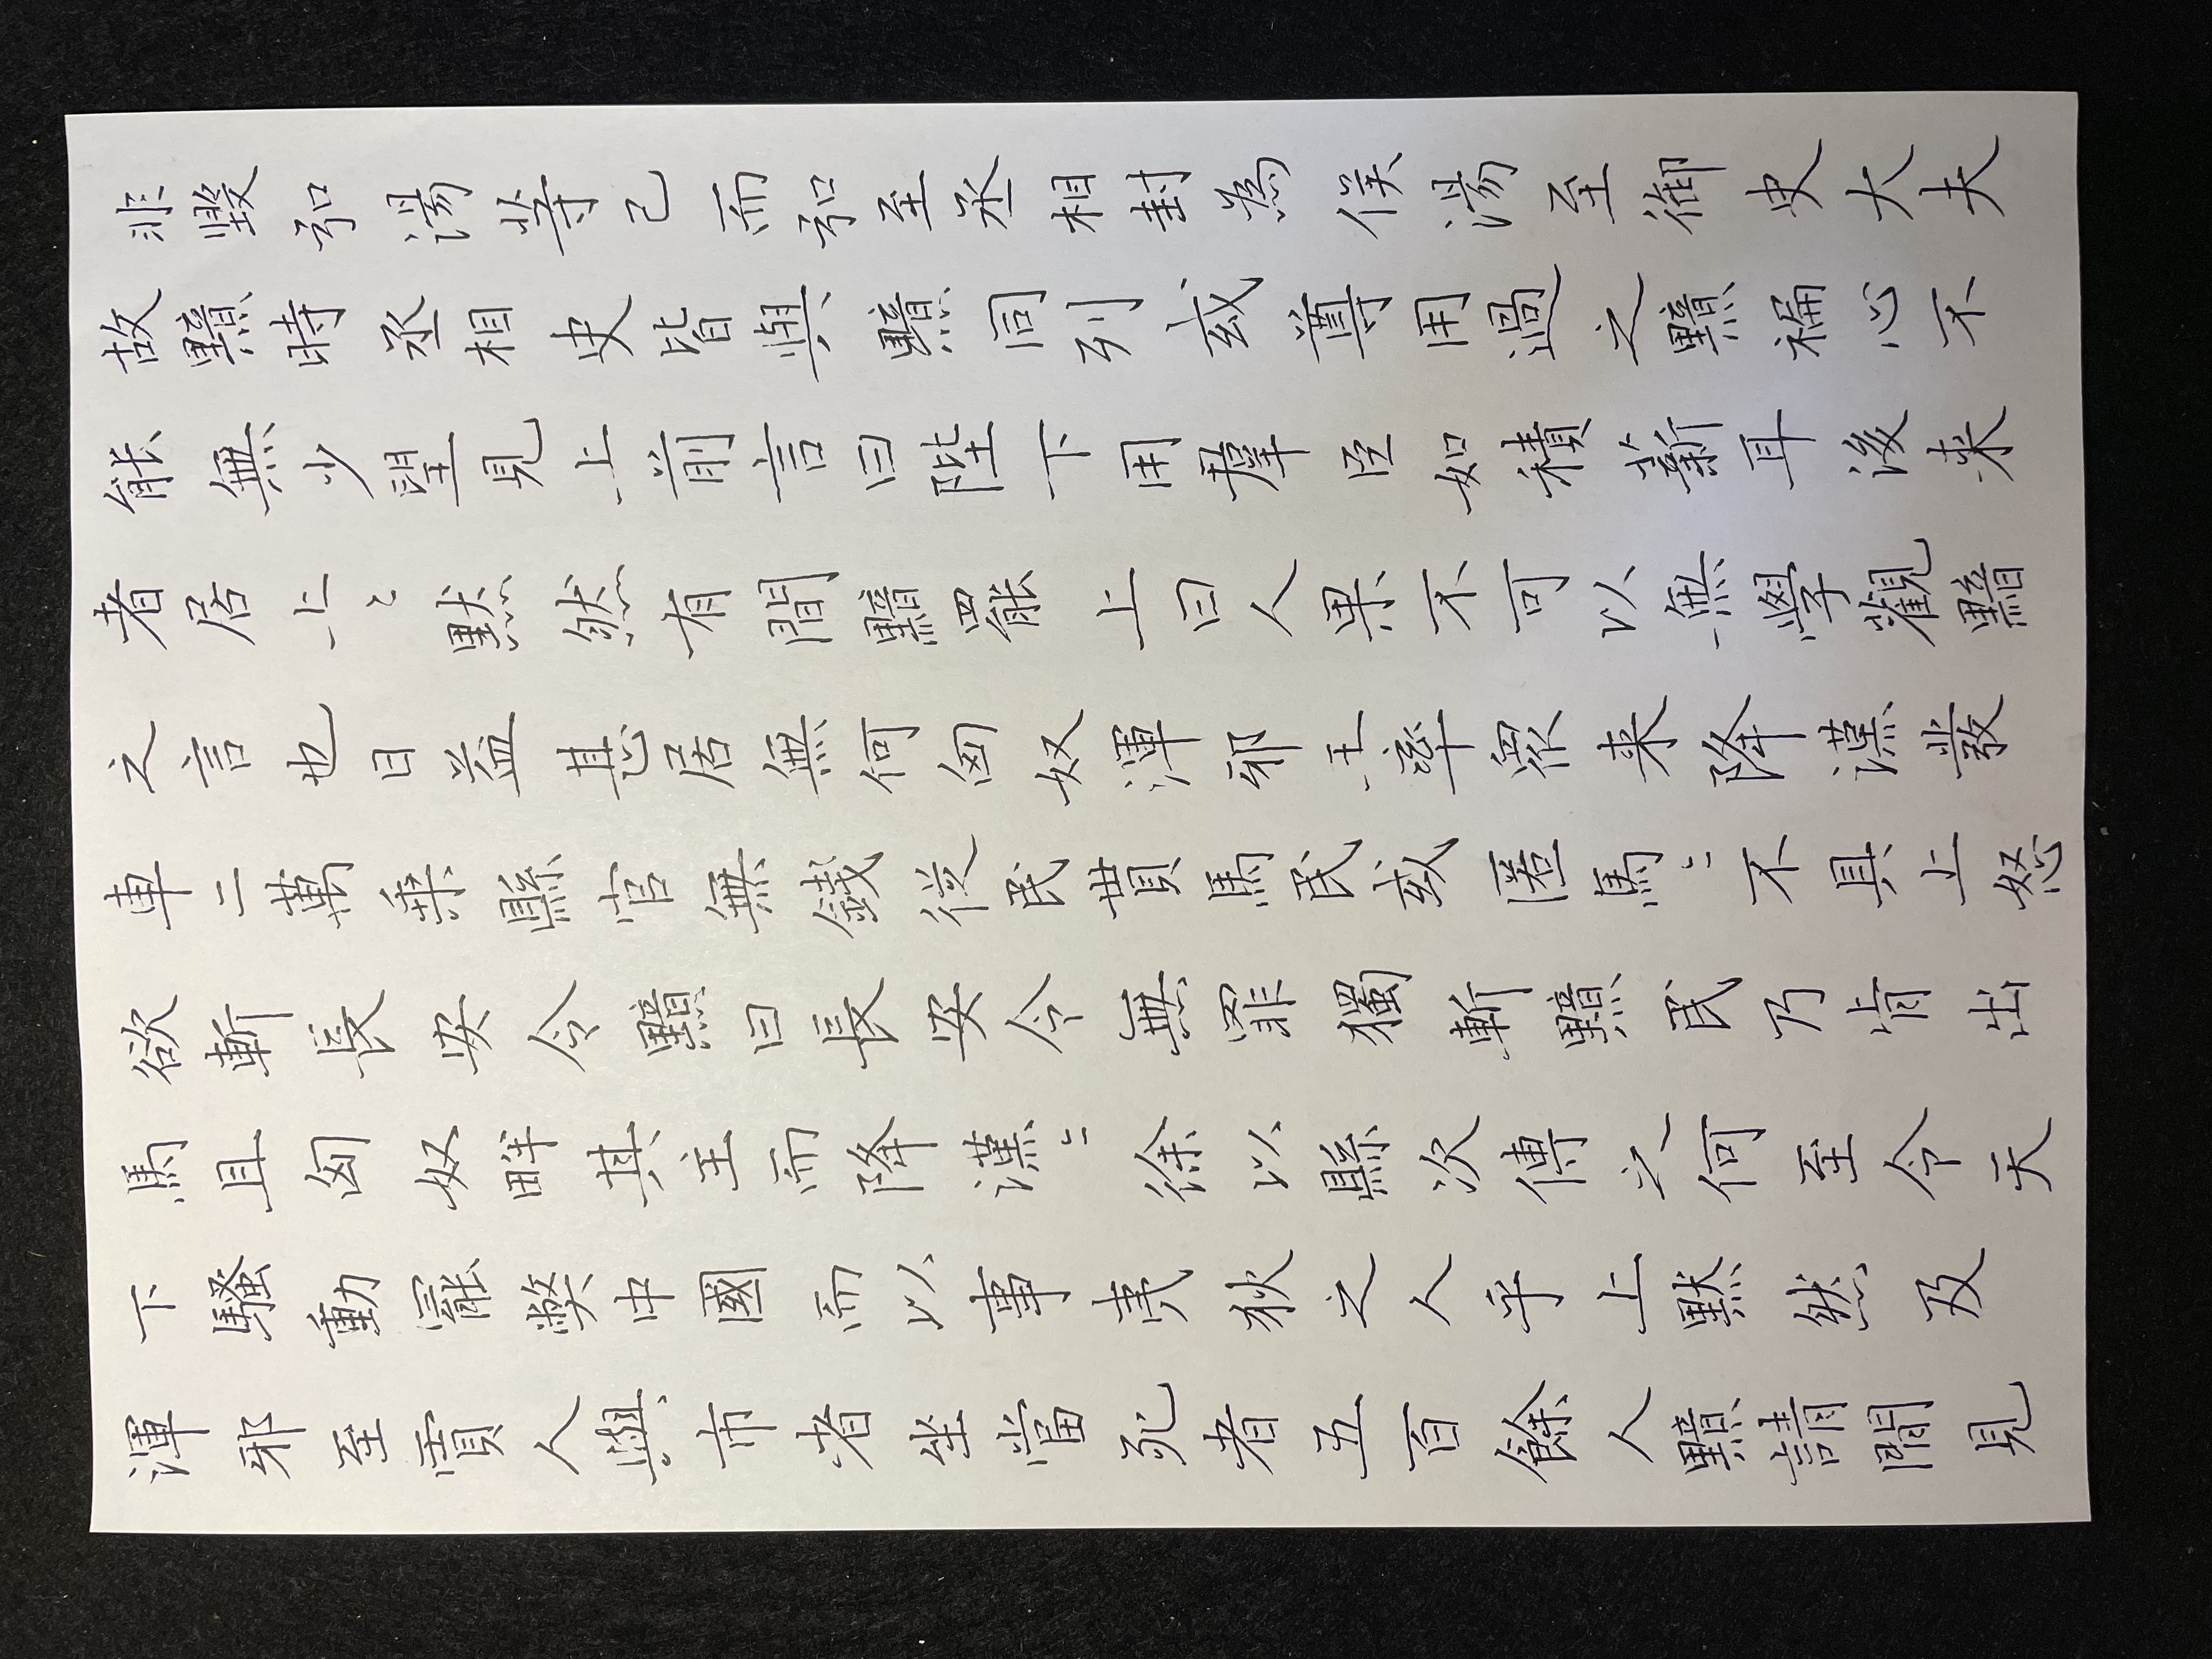 非毀弘湯等已而弘至丞相封為侯湯至御史大夫
故黯時丞相史皆與黯同列或尊用過之黯褊心不
能無少望見上前言曰陛下用羣臣如積薪耳後来
者居上〻默然有間黯罷上曰人果不可以無學觀黯
之言也日益甚居無何匈奴渾邪王率眾来降漢發
車二萬乗縣官無錢從民貰馬民或匿馬〻不具上怒
欲斬長安令黯曰長安令無罪獨斬黯民乃肯出
馬且匈奴畔其主而降漢〻徐以縣次傳之何至令天
下騷動罷獘中國而以事夷狄之人乎上默然及
渾邪至賈人與市者坐當死者五百餘人黯請間見